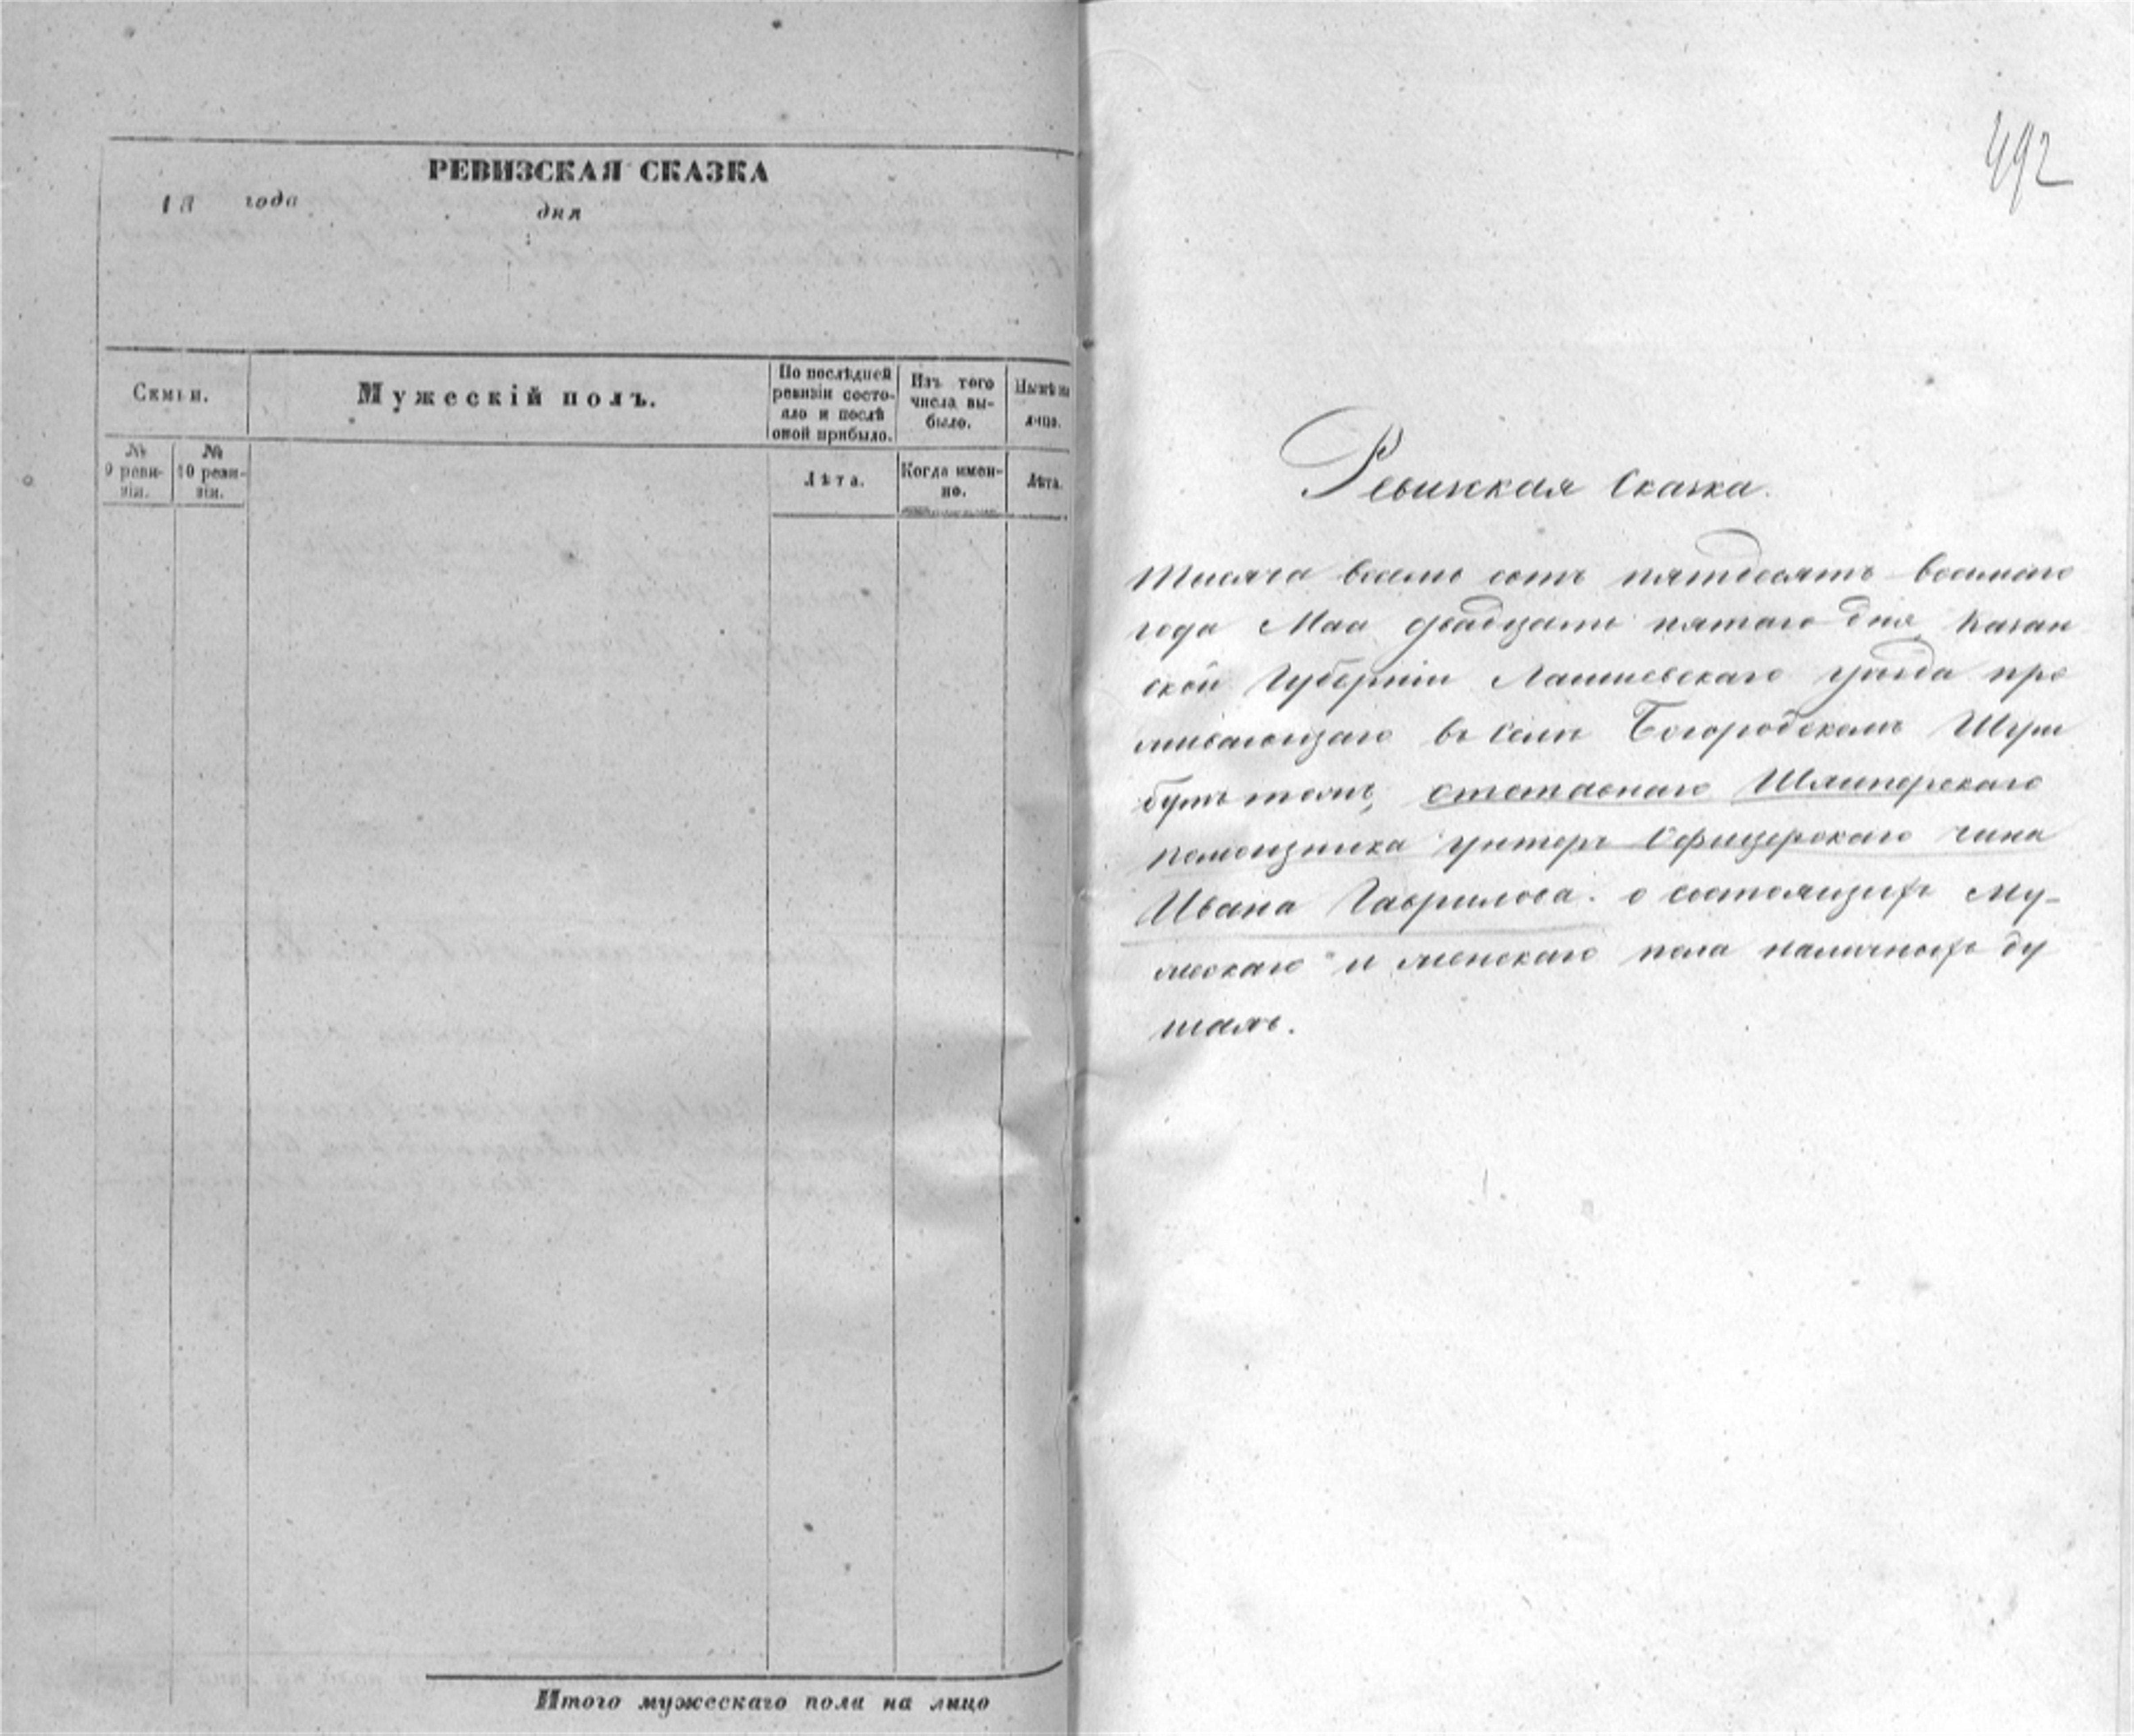 РЕВИЗСКАЯ СКАЗКА
18 года дня
Семьи.
Мужескій полъ.
По послѣдней ревизіи состояло и послѣ оной прибыло.
Изъ того числа выбыло.
Нынѣ на лицо.
№ 9 ревизіи.
№ 10 ревизіи.
Лѣта.
Когда именно.
Лѣта.
Итого мужескаго пола на лицо
492
Ревизская Сказка.
тысяча восемь сотъ пятдесятъ восьмаго
года Маа двадцать пятаго дня Казан
ской Губерніи Лаишевскаго уѣзда про
живающаго въ селѣ Богородскомъ Шум
бутѣ тожъ, отставнаго Шкиперскаго
помощника унтеръ Офицерскаго чина
Ивана Гаврилова. о состоящихъ му-
жескаго и женскаго пола наличныхъ ду
шахъ.